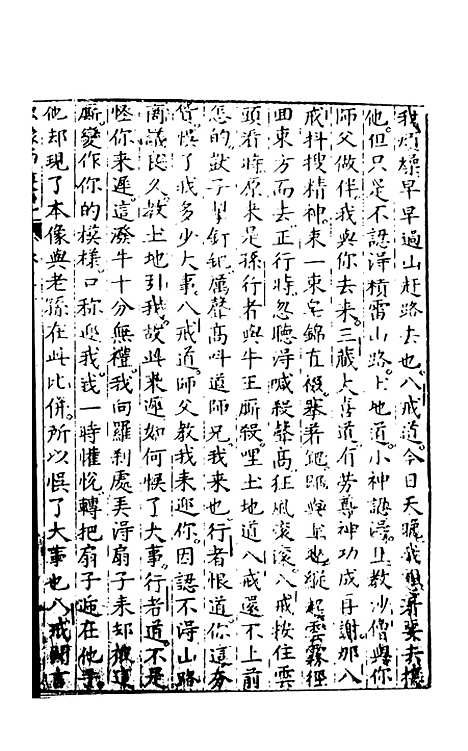 我煩燥早早過山赶路去也八戒道今日天晚我想着要去接
他但只是不認得積雷山路土地道小神認得且教沙僧與你
師父做伴我與你去來三藏大喜道有勞尊神功成再謝那八
戒抖搜精神束一束皂錦直裰搴着鈀即與土地縱起雲霧徑
回東方而去正行時忽聽得喊殺聲高狂風滾滾八戒按住雲
頭看時原來是孫行者與牛王厮殺哩土地道八戒還不上前
怎的獃子掣釘鈀厲聲高叫道師兄我來也行者恨道你這夯
貨悞了我多少大事八戒道師父教我來迎你因認不得山路
商議良久教土地引我故此來遲如何悞了大事行者道不是
怪你來遲這潑牛十分無禮我向羅刹處弄得扇子來却被這
厮變作你的模樣口稱迎我我一時懽悅轉把扇子遞在他手
他却現了本像與老孫在此比併所以悞了大事也八戒聞言